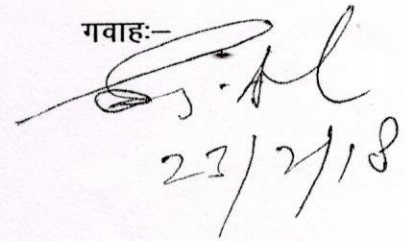 गवाहः–
23/2/18